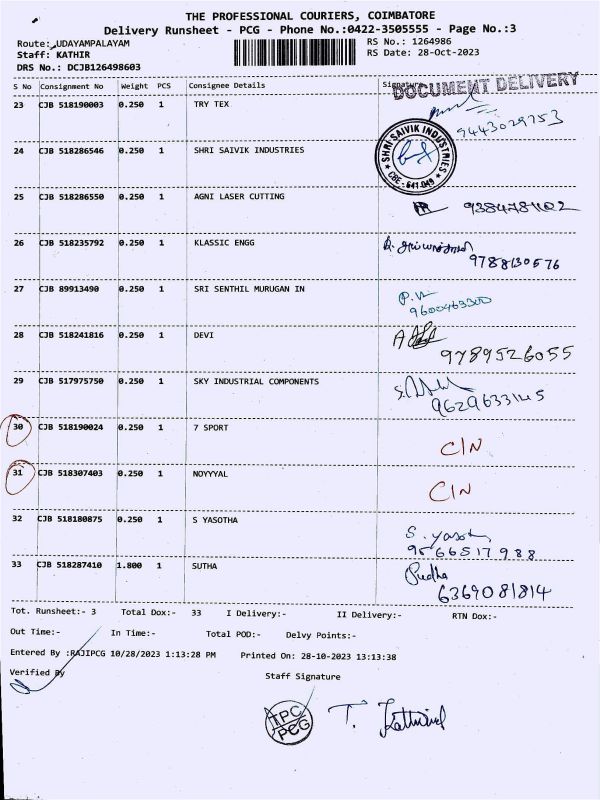 THE PROFESSIONAL COURIERS, COIMBATORE
Delivery Runsheet - PCG - Phone No.:0422-3505555 - Page No.:3
Route: UDAYAMPALAYAM RS No.: 1264986
Staff: KATHIR RS Date: 28-Oct-2023
DRS No.: DCJB126498603
S No Consignment No Weight PCS Consignee Details Signature
DOCUMENT DELIVERY
23 CJB 518190003 0.250 1 TRY TEX
9443029753
24 CJB 518286546 0.250 1 SHRI SAIVIK INDUSTRIES
SHRI SAIVIK INDUSTRIES
CBE - 641 049
25 CJB 518286550 0.250 1 AGNI LASER CUTTING
26 CJB 518235792 0.250 1 KLASSIC ENGG
9788130576
27 CJB 89913490 0.250 1 SRI SENTHIL MURUGAN IN
9600463300
28 CJB 518241816 0.250 1 DEVI
9789526055
29 CJB 517975750 0.250 1 SKY INDUSTRIAL COMPONENTS
9629633145
30 CJB 518190024 0.250 1 7 SPORT
C/N
31 CJB 518307403 0.250 1 NOYYYAL
C/N
32 CJB 518180875 0.250 1 S YASOTHA
S. yasoth
9566517988
33 CJB 518287410 1.800 1 SUTHA
Sudha
6369081814
Tot. Runsheet:- 3 Total Dox:- 33 I Delivery:- II Delivery:- RTN Dox:-
Out Time:- In Time:- Total POD:- Delvy Points:-
Entered By :RAJIPCG 10/28/2023 1:13:28 PM Printed On: 28-10-2023 13:13:38
Verified By Staff Signature
TPC
PCG
T. Kathirvel